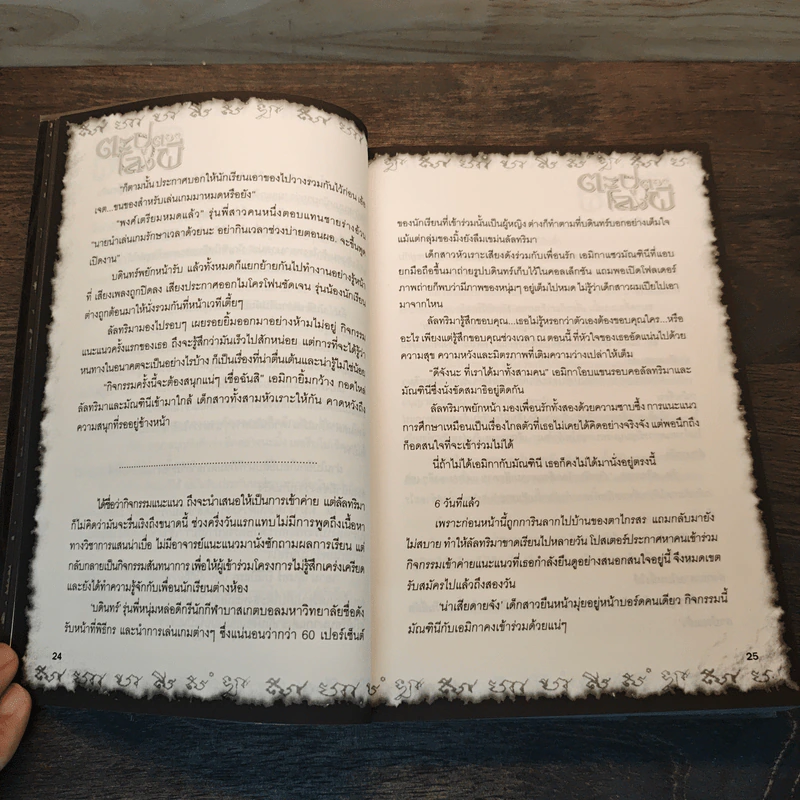 ตะปู
โลงผี
"ก็ตามนั้น ประกาศบอกให้นักเรียนเอาของไปวางรวมกันไว้ก่อน
เจต...ขนของสำหรับเล่นเกมมาหมดหรือยัง"
"พงศ์เตรียมหมดแล้ว" รุ่นพี่สาวคนหนึ่งตอบแทนชายร่างอ้วน
"นายนำเล่นเกมรักษาเวลาด้วยนะ อย่ากินเวลาช่วงบ่ายตอนผอ. จะขึ้นพูด
เปิดงาน"
บดินทร์พยักหน้ารับ แล้วทั้งหมดก็แยกย้ายกันไปทำงานอย่างรู้หน้า
ที่ เสียงเพลงถูกปิดลง เสียงประกาศออกไมโครโฟนชัดเจน รุ่นน้องนักเรียน
ต่างถูกต้อนมาให้นั่งรวมกันที่หน้าเวทีเตี้ยๆ
ลัลทริมามองไปรอบๆ เผยรอยยิ้มออกมาอย่างห้ามไม่อยู่ กิจกรรม
แนะแนวครั้งแรกของเธอ ถึงจะรู้สึกว่ามันเร็วไปสักหน่อย แต่การที่จะได้รู้ว่า
หนทางในอนาคตจะเป็นอย่างไรบ้าง ก็เป็นเรื่องที่น่าตื่นเต้นและน่ารู้ไม่ใช่น้อย
"กิจกรรมครั้งนี้จะต้องสนุกแน่ๆ เชื่อฉันสิ" เอมิกายิ้มกว้าง กอดไหล่
ลัลทริมาและมัณฑินีเข้ามาใกล้ เด็กสาวทั้งสามหัวเราะให้กัน คาดหวังถึง
ความสนุกที่รออยู่ข้างหน้า
ได้ชื่อว่ากิจกรรมแนะแนว ถึงจะนำเสนอให้เป็นการเข้าค่าย แต่ลัลทริมา
ก็ไม่คิดว่ามันจะรื่นเริงถึงขนาดนี้ ช่วงครึ่งวันแรกแทบไม่มีการพูดถึงเนื้อหา
ทางวิชาการแสนน่าเบื่อ ไม่มีอาจารย์แนะแนวมานั่งซักถามผลการเรียน แต่
กลับกลายเป็นกิจกรรมสันทนาการ เพื่อให้ผู้เข้าร่วมโครงการไม่รู้สึกเคร่งเครียด
และยังได้ทำความรู้จักกับเพื่อนนักเรียนต่างห้อง
'บดินทร์' รุ่นพี่หนุ่มหล่อดีกรีนักกีฬาบาสเกตบอลมหาวิทยาลัยชื่อดัง
รับหน้าที่พิธีกร และนำการเล่นเกมต่างๆ ซึ่งแน่นอนว่ากว่า 60 เปอร์เซ็นต์
24
ตะปู
โลงผี
ของนักเรียนที่เข้าร่วมนั้นเป็นผู้หญิง ต่างก็ทำตามที่บดินทร์บอกอย่างเต็มใจ
แม้แต่กลุ่มของมิ้งยังลืมเขม่นลัลทริมา
เด็กสาวหัวเราะเสียงดังร่วมกับเพื่อนรัก เอมิกาแซวมัณฑินีที่แอบ
ยกมือถือขึ้นมาถ่ายรูปบดินทร์เก็บไว้ในคอลเล็กชัน แถมพอเปิดโฟลเดอร์
ภาพถ่ายก็พบว่ามีภาพของหนุ่มๆ อยู่เต็มไปหมด ไม่รู้ว่าเด็กสาวผมเปียไปเอา
มาจากไหน
ลัลทริมารู้สึกขอบคุณ...เธอไม่รู้หรอกว่าตัวเองต้องขอบคุณใคร...หรือ
อะไร เพียงแต่รู้สึกขอบคุณช่วงเวลา ณ ตอนนี้ ที่หัวใจของเธออัดแน่นไปด้วย
ความสุข ความหวังและมิตรภาพที่เติมความว่างเปล่าให้เต็ม
"ดีจังนะ ที่เราได้มาทั้งสามคน" เอมิกาโอบแขนรอบคอลัลทริมาและ
มัณฑินีซึ่งนั่งขัดสมาธิอยู่ติดกัน
ลัลทริมาพยักหน้า มองเพื่อนรักทั้งสองด้วยความซาบซึ้ง การแนะแนว
การศึกษาเหมือนเป็นเรื่องไกลตัวที่เธอไม่เคยได้คิดอย่างจริงจัง แต่พอนึกถึง
ก็อดสนใจที่จะเข้าร่วมไม่ได้
นี่ถ้าไม่ได้เอมิกากับมัณฑินี เธอก็คงไม่ได้มานั่งอยู่ตรงนี้
6 วันที่แล้ว
เพราะก่อนหน้านี้ถูกการินลากไปบ้านของตาไกรสร แถมกลับมายัง
ไม่สบาย ทำให้ลัลทริมาขาดเรียนไปหลายวัน โปสเตอร์ประกาศหาคนเข้าร่วม
กิจกรรมเข้าค่ายแนะแนวที่เธอกำลังยืนดูอย่างสนอกสนใจอยู่นี้ จึงหมดเขต
รับสมัครไปแล้วถึงสองวัน
'น่าเสียดายจัง' เด็กสาวยืนหน้ามุ่ยอยู่หน้าบอร์ดคนเดียว กิจกรรมนี้
มัณฑินีกับเอมิกาคงเข้าร่วมด้วยแน่ๆ
25